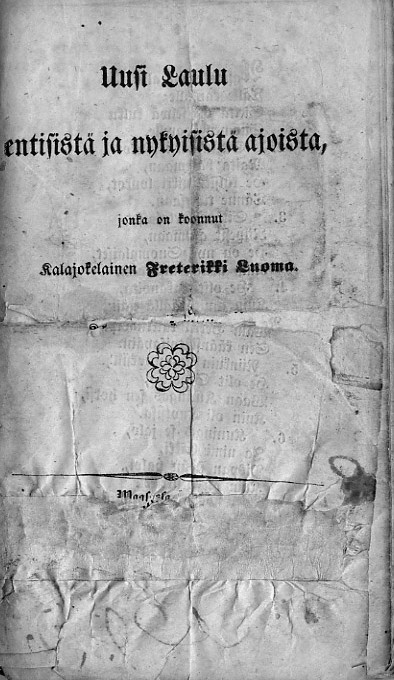 Uusi Laulu
entisistä ja nykyisistä ajoista,
jonka on koonnut
Kalajokelainen Freterikki Luoma.